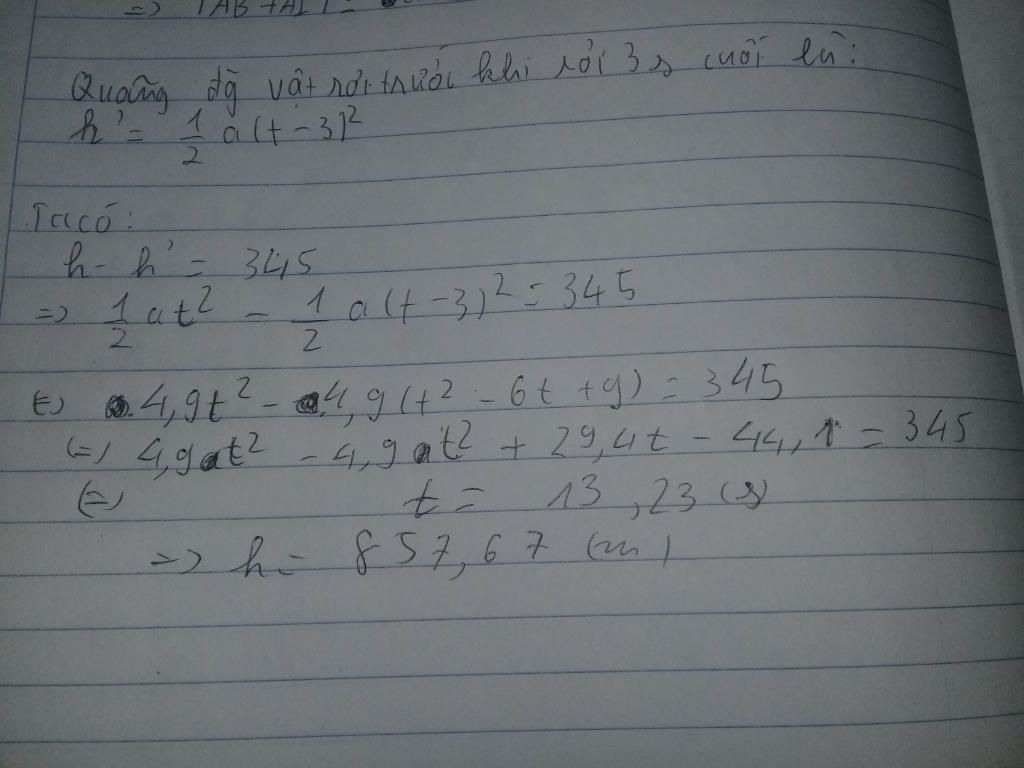 Quãng đg vật rơi trước khi rơi 3s cuối là:
h' = 1/2 a(t-3)²
Ta có:
h - h' = 345
=> 1/2 at² - 1/2 a(t-3)² = 345
<=> 4,9t² - 4,9(t² - 6t + 9) = 345
<=> 4,9t² - 4,9t² + 29,4t - 44,1 = 345
<=> t = 13,23 (s)
=> h = 857,67 (m)